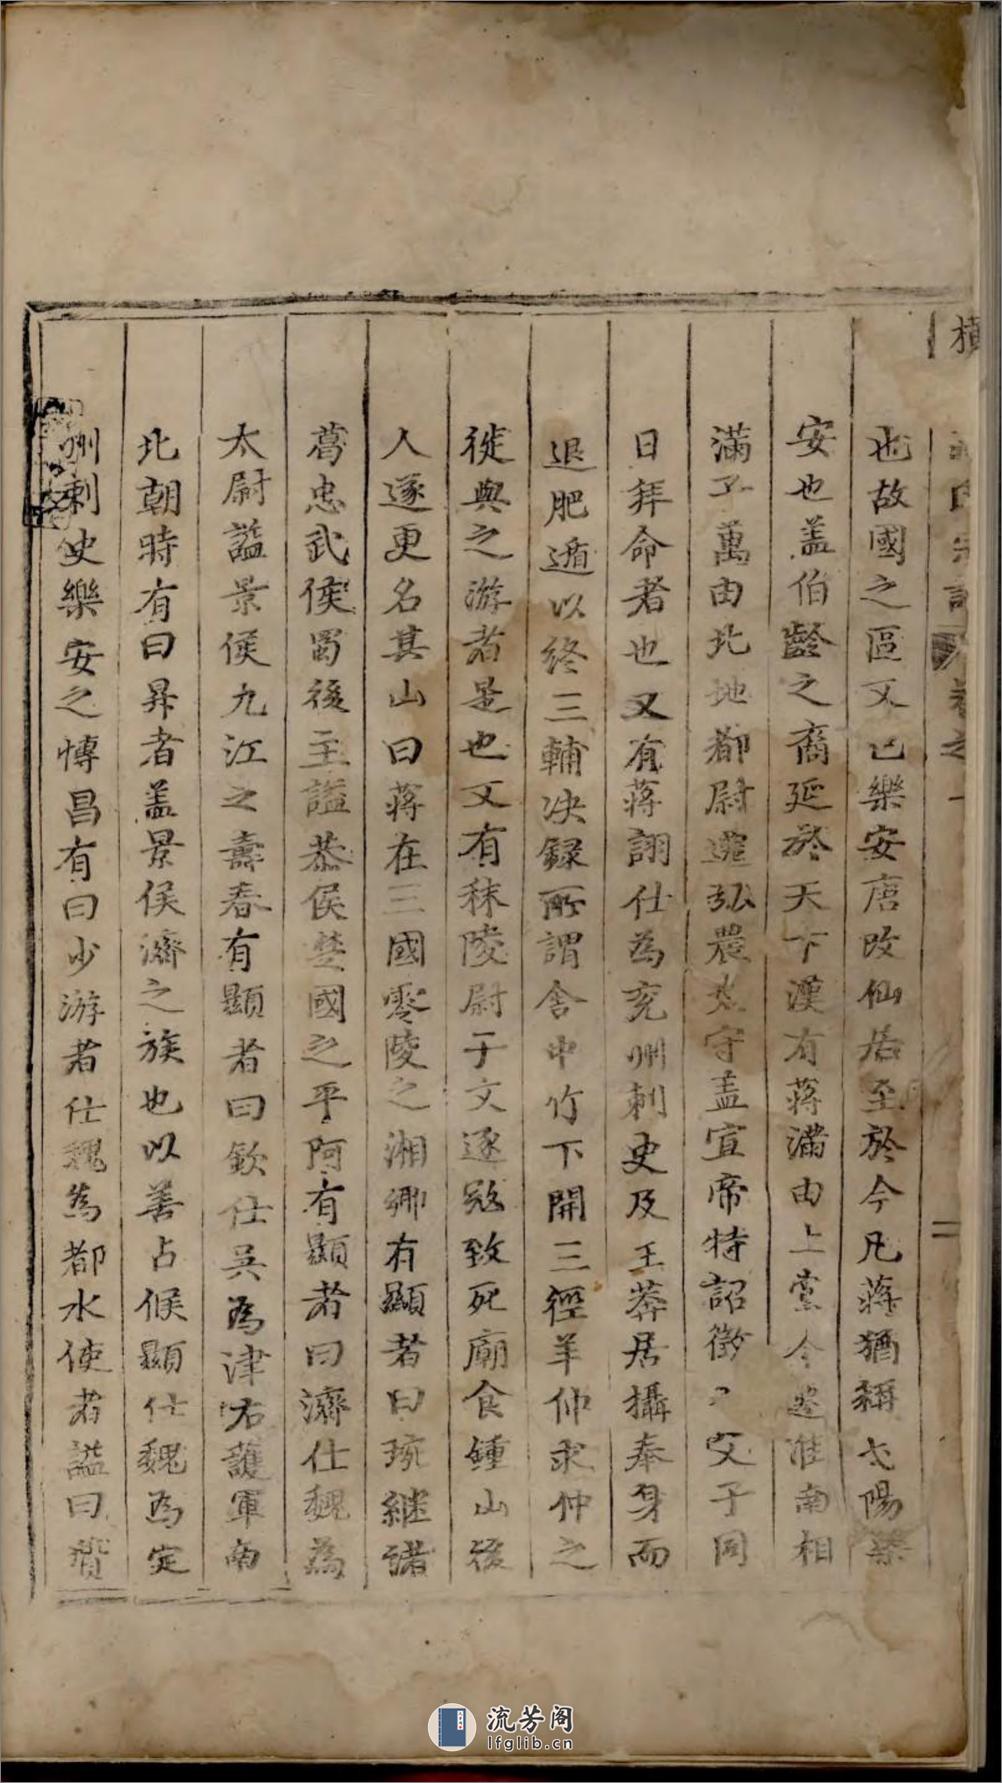 也故國之區又已樂安唐改仙居至於今凡蔣猶稱弋陽樂
安也盖伯齡之裔延於天下漢有蔣滿由上黨令遷淮南相
滿子萬由北地都尉遷弘農太守盖宣帝特詔徵父子同
日拜命者也又有蔣詡仕為兖州刺史及王莽居攝奉身而
退肥遁以終三輔决録所謂舍中竹下開三徑羊仲求仲之
徒與之游者是也又有秣陵尉子文逐冦致死廟食鍾山後
人遂更名其山曰蔣在三國零陵之湘鄉有顯者曰琬繼諸
葛忠武侯蜀後主謚恭侯楚國之平阿有顯者曰濟仕魏為
太尉謚景侯九江之壽春有顯者曰欽仕吴為津右護軍南
北朝時有曰昇者盖景侯濟之族也以善占候顯仕魏為定
州刺史樂安之博昌有曰少游者仕魏為都水使者謚曰質
流芳阁
lfglib.cn